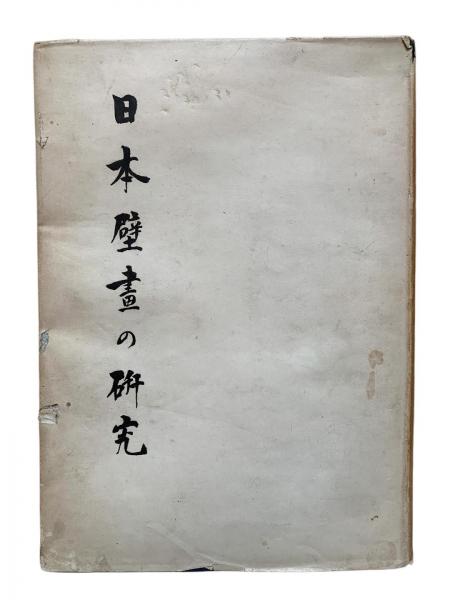 日本壁畫の硏究